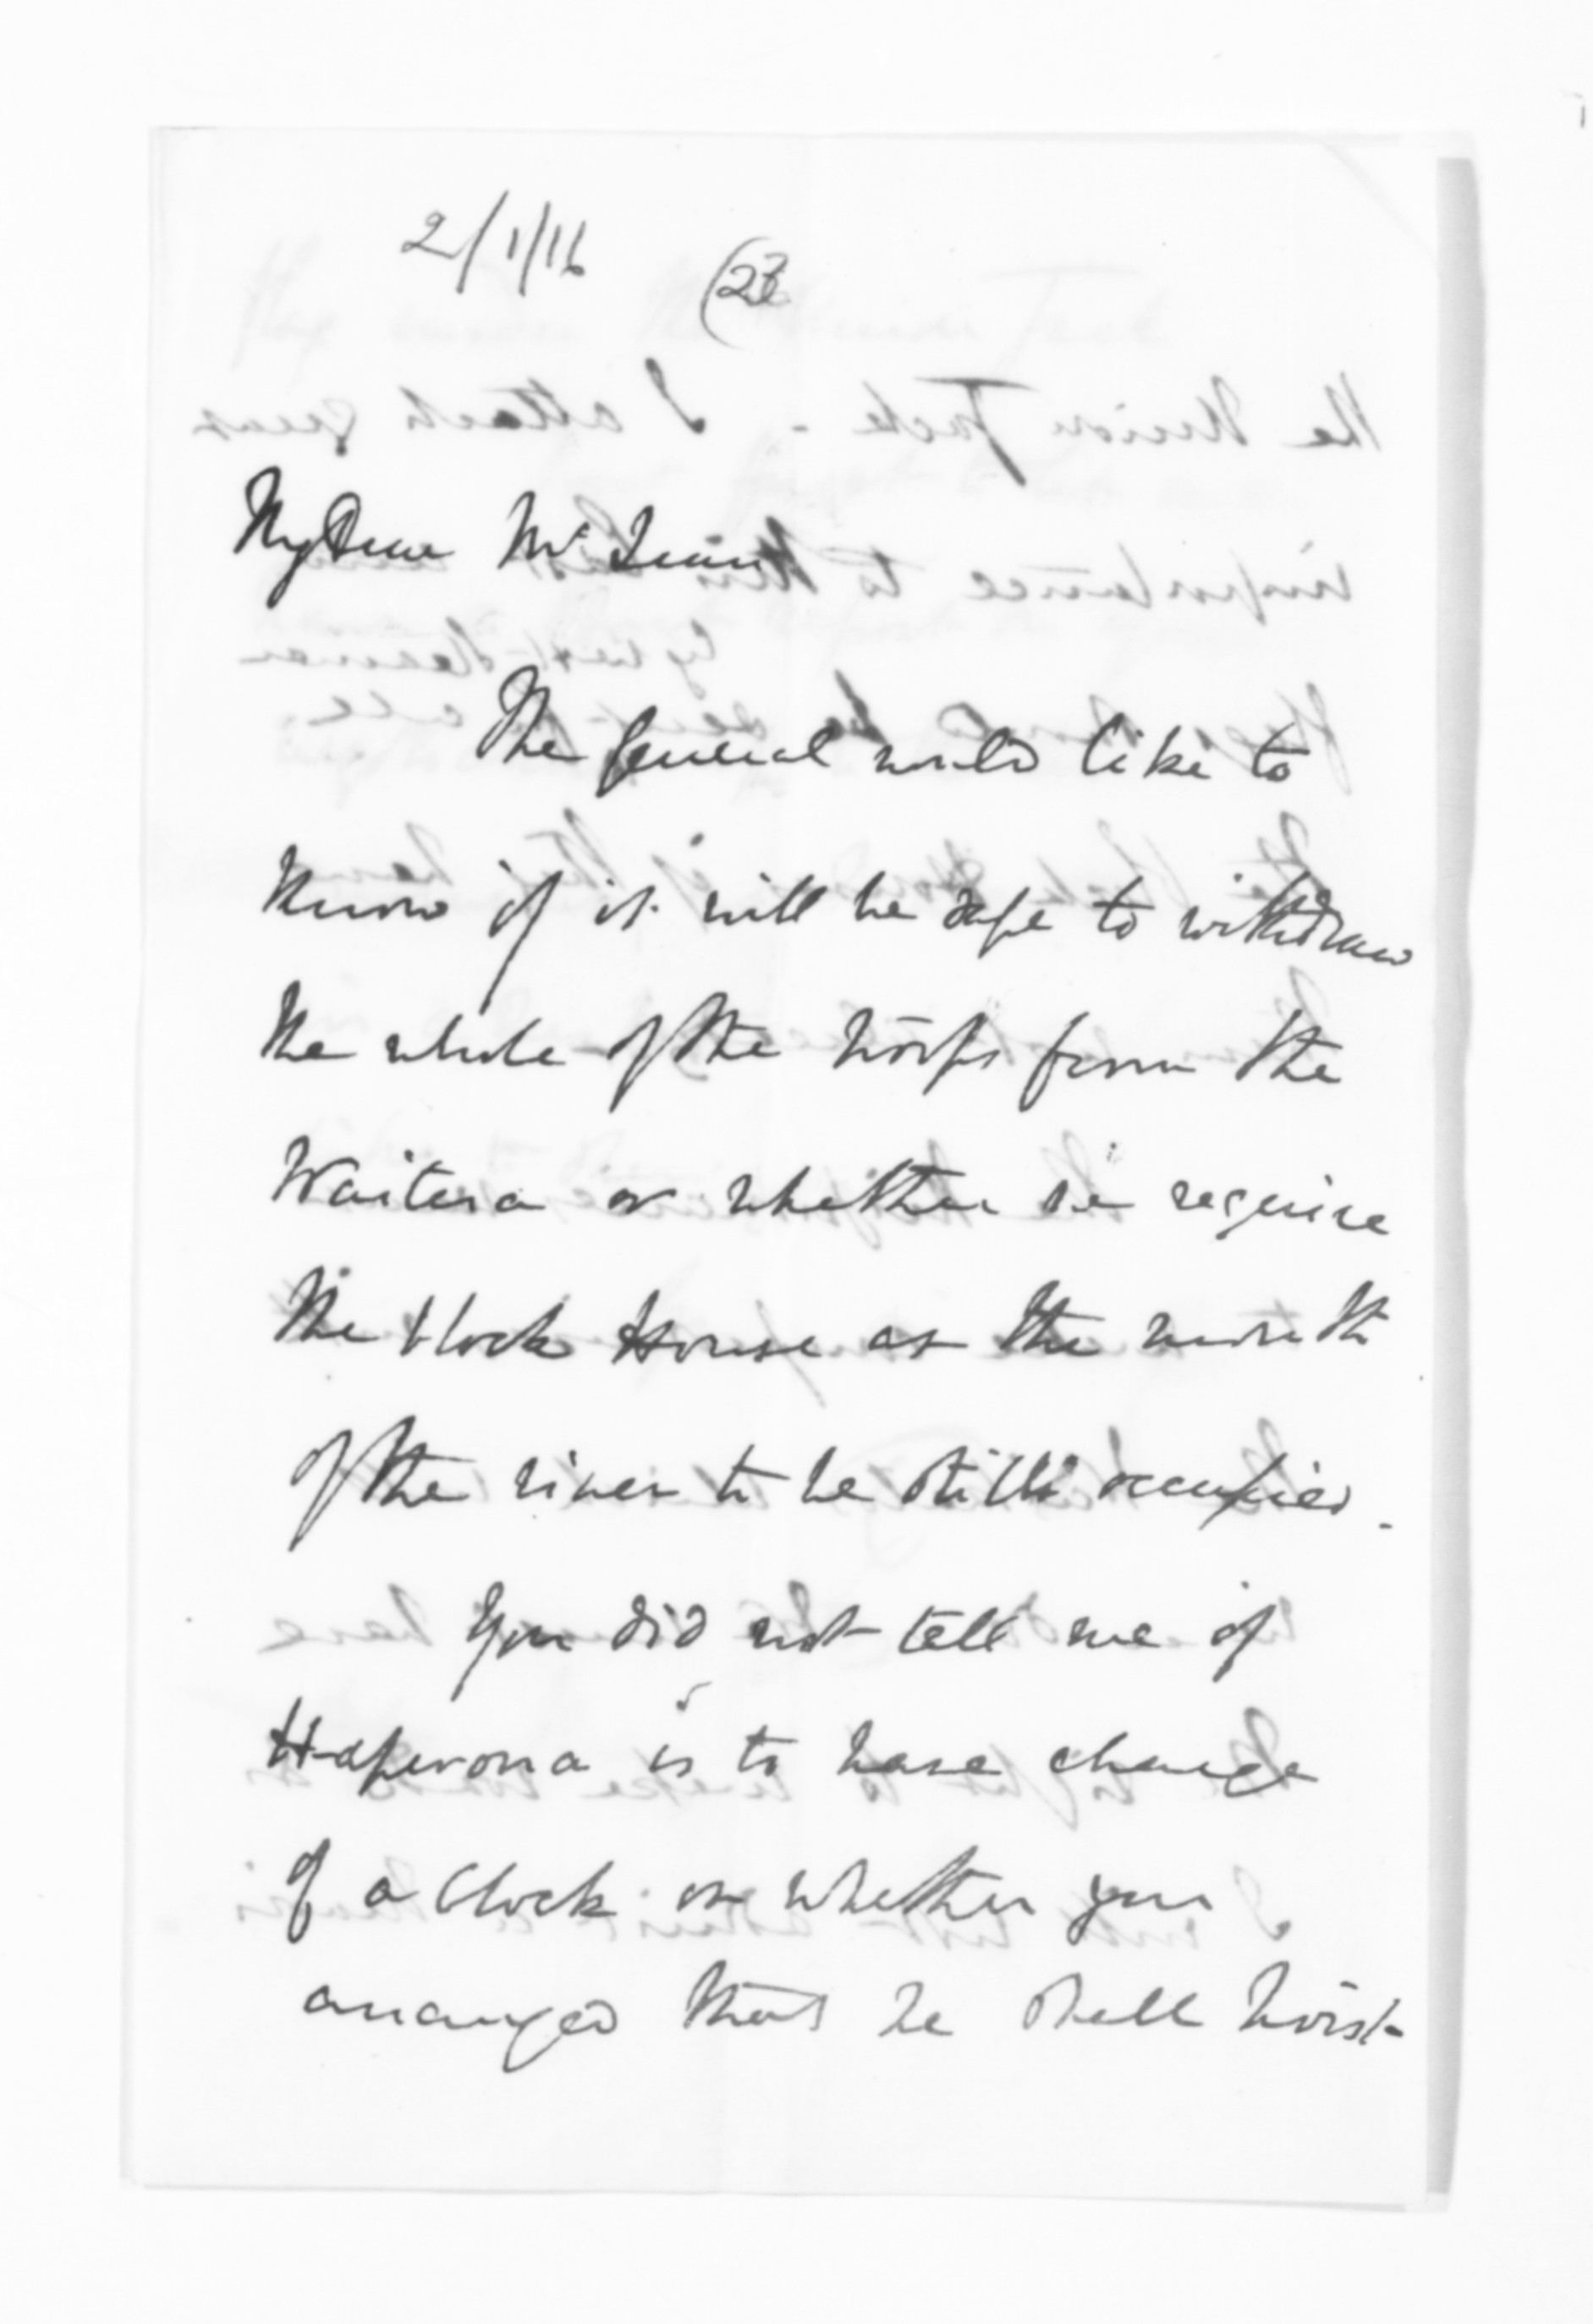 2/1/16
(23
My Dear Mc Lean
The General would like to
know if it will be safe to withdraw
the whole of the troops from the
Waitera or whether we require
the block House at the mouth
of the river to be still occupied.
You did not tell me if
Hapurona is to have charge
of a block or whether you
arranged that he shall hoist